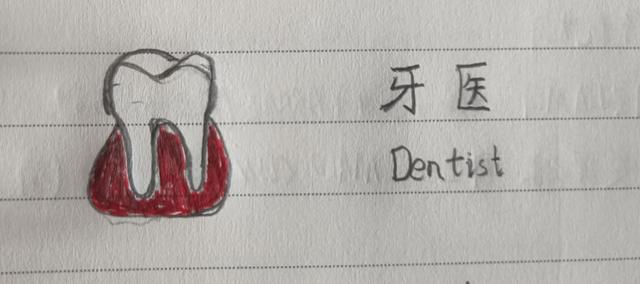 牙医
Dentist